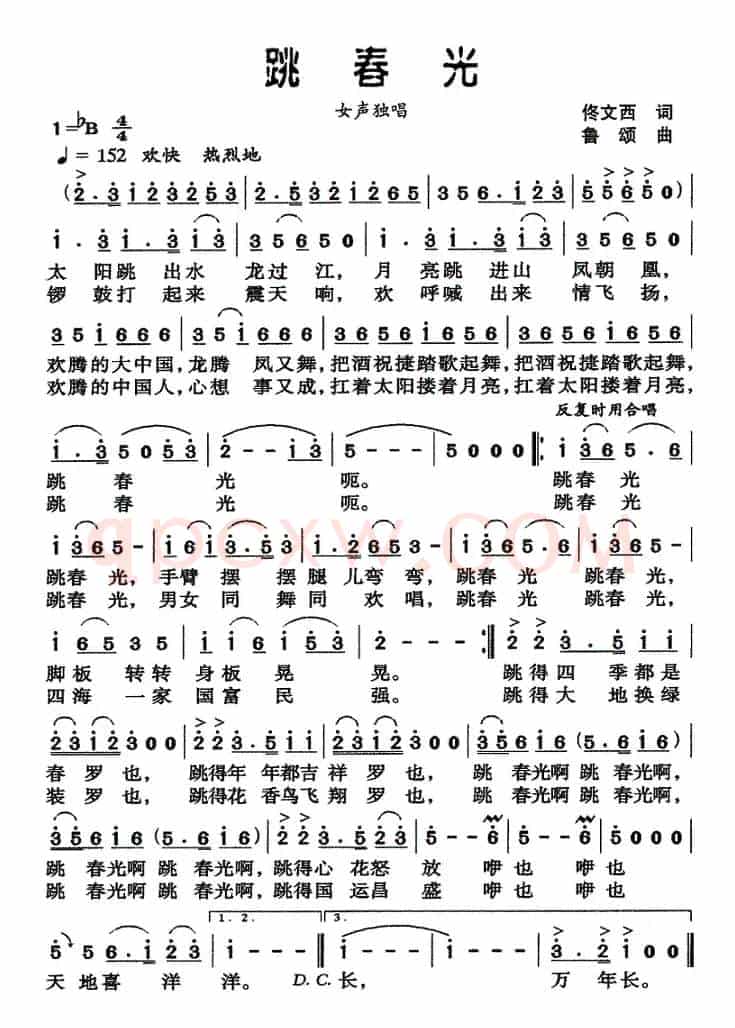 跳春光
女声独唱
佟文西 词
1=♭B 4/4
鲁 颂 曲
♩= 152 欢快 热烈地
(2·3 123253 | 2·5321265 | 356·123 | 55650)
1·31·313 | 35650 | 1·31·313 | 35650
太 阳跳 出水 龙过 江， 月 亮跳 进山 凤朝 凰，
锣 鼓打 起来 震天 响， 欢 呼喊 出来 情飞 扬，
351666 | 351666 | 35656156 | 35656156
欢腾的大中国，龙腾 凤又舞，把酒祝捷踏歌起舞，把酒祝捷踏歌起舞，
欢腾的中国人，心想 事又成，扛着太阳搂着月亮，扛着太阳搂着月亮，
反复时用合唱
1·35053 | 2--13 | 5--- | 5000 ‖: 1365·6
跳 春 光 呃。 跳春 光
跳 春 光 呃。 跳春 光
1365- | 6163·53 | 2312·6 | 1365·6 | 1365-
跳春 光，手臂 摆 摆腿 儿弯 弯，跳春 光 跳春 光，
跳春 光，男女 同 舞同 欢 唱，跳春 光 跳春 光，
16535 | 116153 | 2--- :‖ 223·511
脚板 转转 身板 晃 晃。 跳得四 季都是
四海 一家 国富 民 强。 跳得大 地换绿
2312300 | 223·511 | 2312300 | 35616 (5·616)
春 罗也， 跳得年 年都吉 祥 罗 也， 跳 春光啊 跳 春光啊，
装 罗也， 跳得花 香鸟飞 翔 罗 也， 跳 春光啊 跳 春光啊，
35616 (5·616) | 223·523 | 5--6 | 5--6
跳 春光啊 跳 春光啊，跳得心 花怒 放 咿也 咿也
跳 春光啊 跳 春光啊，跳得国 运昌 盛 咿也 咿也
1. 2. 3.
5 5 6·1 23 | 1--- ‖ 1--- | 1--- | 3·21100 ‖
天 地喜 洋 洋。 D.C. 长， 万 年长。
qpcxw.COM